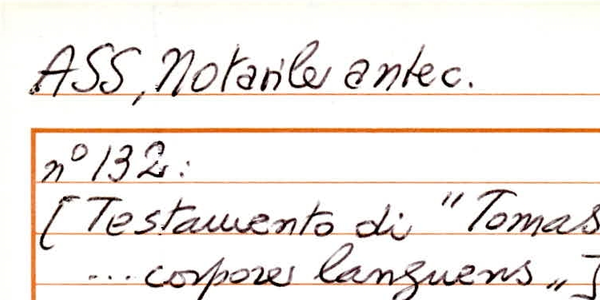 ASS, Notarile antec.
nº 132:
[Testamento di "Tomas
... corpore languens"]